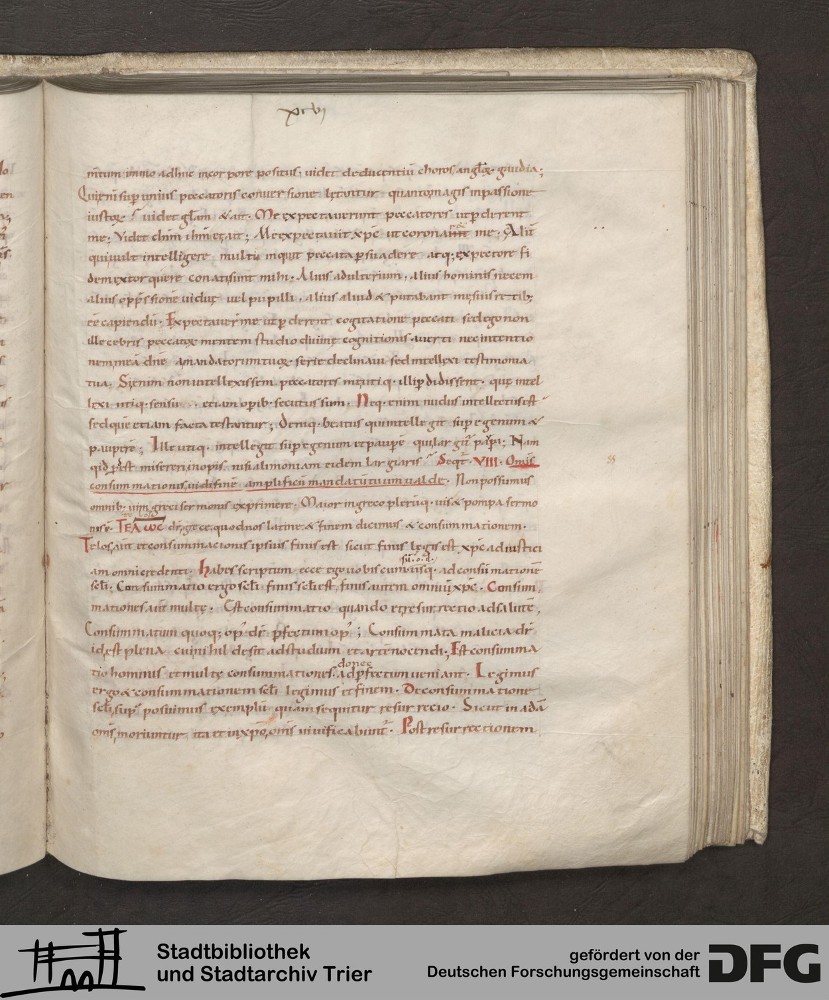 xcvi
mitum immo adhuc incorpore positus; uidet deducentiũ choros anglꝝ. gaudia;
Qui enĩ sup unius peccatoris conuersione letantur quantomagis inpassione
iustoꝝ; uidet glam & ait. Me expectauerunt peccatores ut pderent
me; Videt enim ihm et ait; Me expectauit xpc ut coronaret me; Alit
qui uult intelligere multi inquit peccata psuadere atq; expectore fi
dem extorquere conati sunt mihi. Alius adulterium. alius hominis necem
alius oppssione uidue uel pupilli. alius aliud & putabant me suis retib;
ee capiendũ. Expectauer me ut pderent cogitatione peccati sed ego non
illecebris peccati mentem studio diuine cognitionis auerti nec intentio
nem meã dne a mandatorum tuoꝝ serie declinaui sed intellexi testimonia
tua. Si enim non intellexissem peccatores me utiq. illi pdidissent. que intel
lexi utiq. sensu. etiam opib. secutus sum. Neq. enim nudus intellectus est
sed que etiam facta testantur; Deniq. beatus qui intellegit sup egenum &
paupere; Ille utiq. intellegit sup egenum et paupe qui largit̃ paupi; Nam
qid pdest misereri inopis nisi alimoniam eidem largiaris Seqt̃. VIII. Omis
consummationis uidi finẽ amplificũ mandatũ tuum ualde. Non possumus
omnib. uim greci sermonis exprimere. Maior in greco plerũq. uis & pompa sermo
nis ẽ. ΤΕΛωc dr. grece, quod nos latine & finem dicimus & consummationem.
Telos aut et consummationis ipsius finis est sicut finis legis est xpc ad iustici
am omni credenti. Habes scriptum ecce ego uobiscum sũ usq. ad consũmationẽ
scli. Consummatio ergo scli finis scli est, finis autem omniũ xpc. Consum
mationes aut multe. Est consummatio quando et resurrectio ad salutẽ,
Consummatum quoq; op' dr pfectum op'; Consummata malicia dr
id est plena cui nihil desit ad studium et arte nocendi; Est consumma
tio hominis et multe consummationes. donec ad pfectum ueniant. Legimus
ergo & consummationem scli legimus et finem. De consummatione
scli sup' posuimus exemplũ quam sequitur resurrecio. Sicut in adã
oms moriuntur ita et in xpo oms uiuificabunt̃. Post resurrectionem
Stadtbibliothek
und Stadtarchiv Trier
gefördert von der
Deutschen Forschungsgemeinschaft
DFG